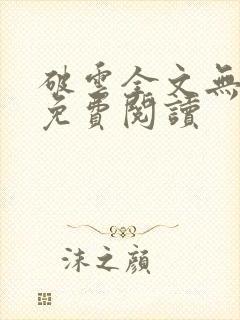 破雲全文無
免費閱讀
沫之顏